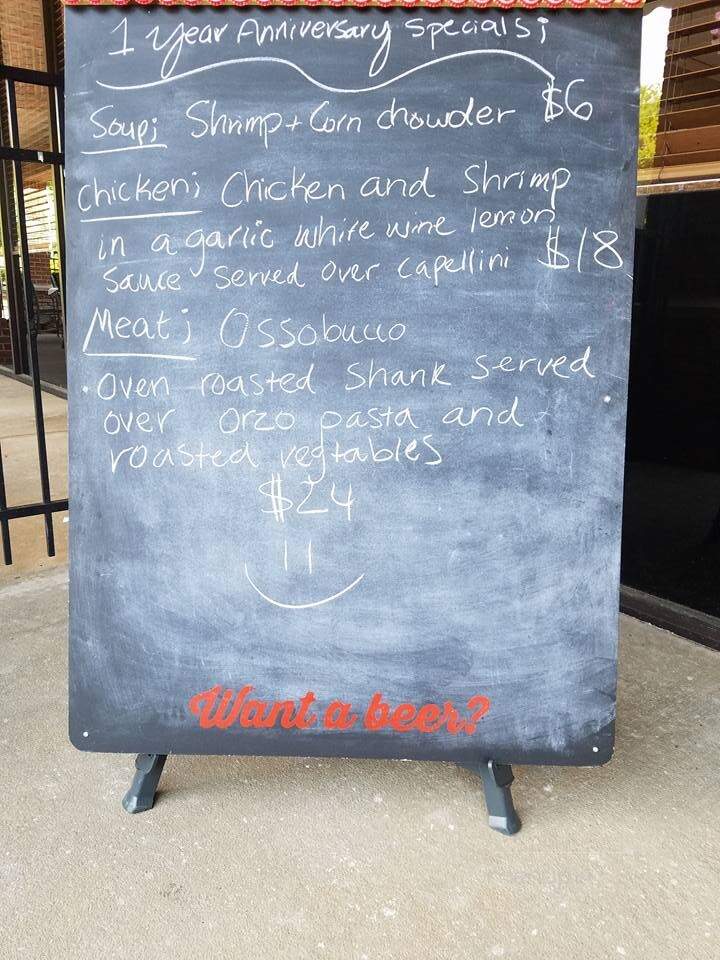 1 Year Anniversary Specials;
Soup; Shrimp + Corn chowder $6
Chicken; Chicken and Shrimp
in a garlic white wine lemon
Sauce Served over capellini $18
Meat; Ossobucco
• Oven roasted Shank served
over orzo pasta and
roasted vegtables
$24
Want a beer?